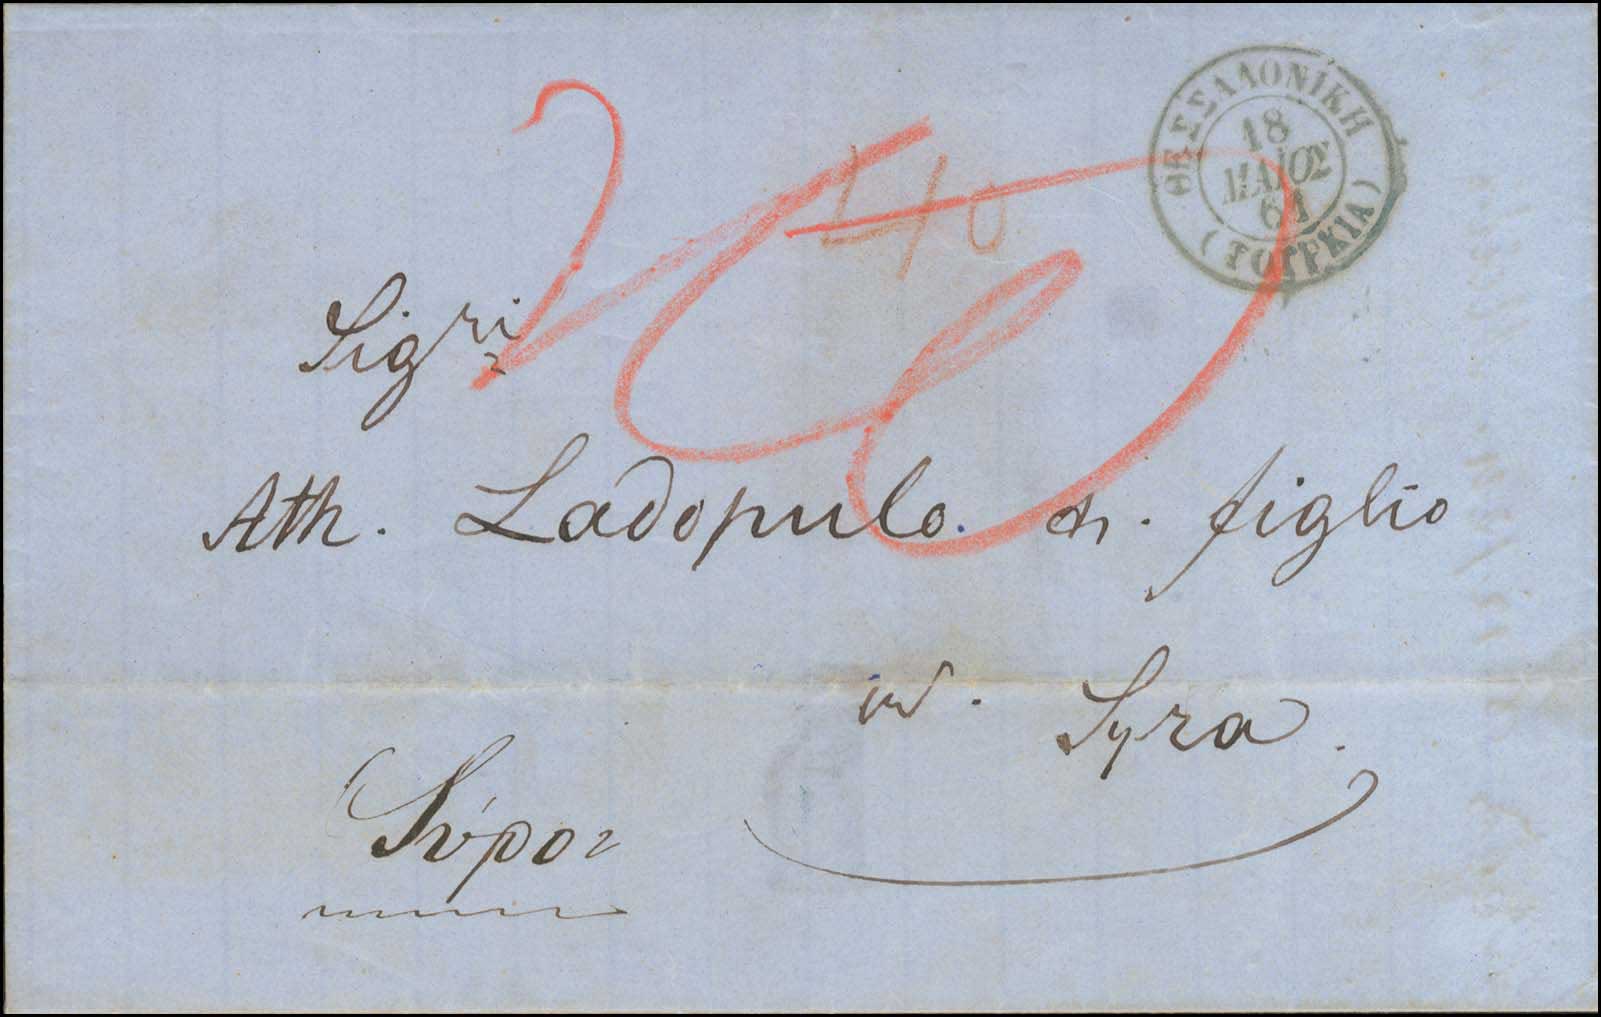 ΘΕΣΣΑΛΟΝΙΚΗ
18
ΜΑΙΟΣ
61
(ΤΟΥΡΚΙΑ)
40
Sigri
Ath. Ladopulo & figlio
Syra.
Σύρον